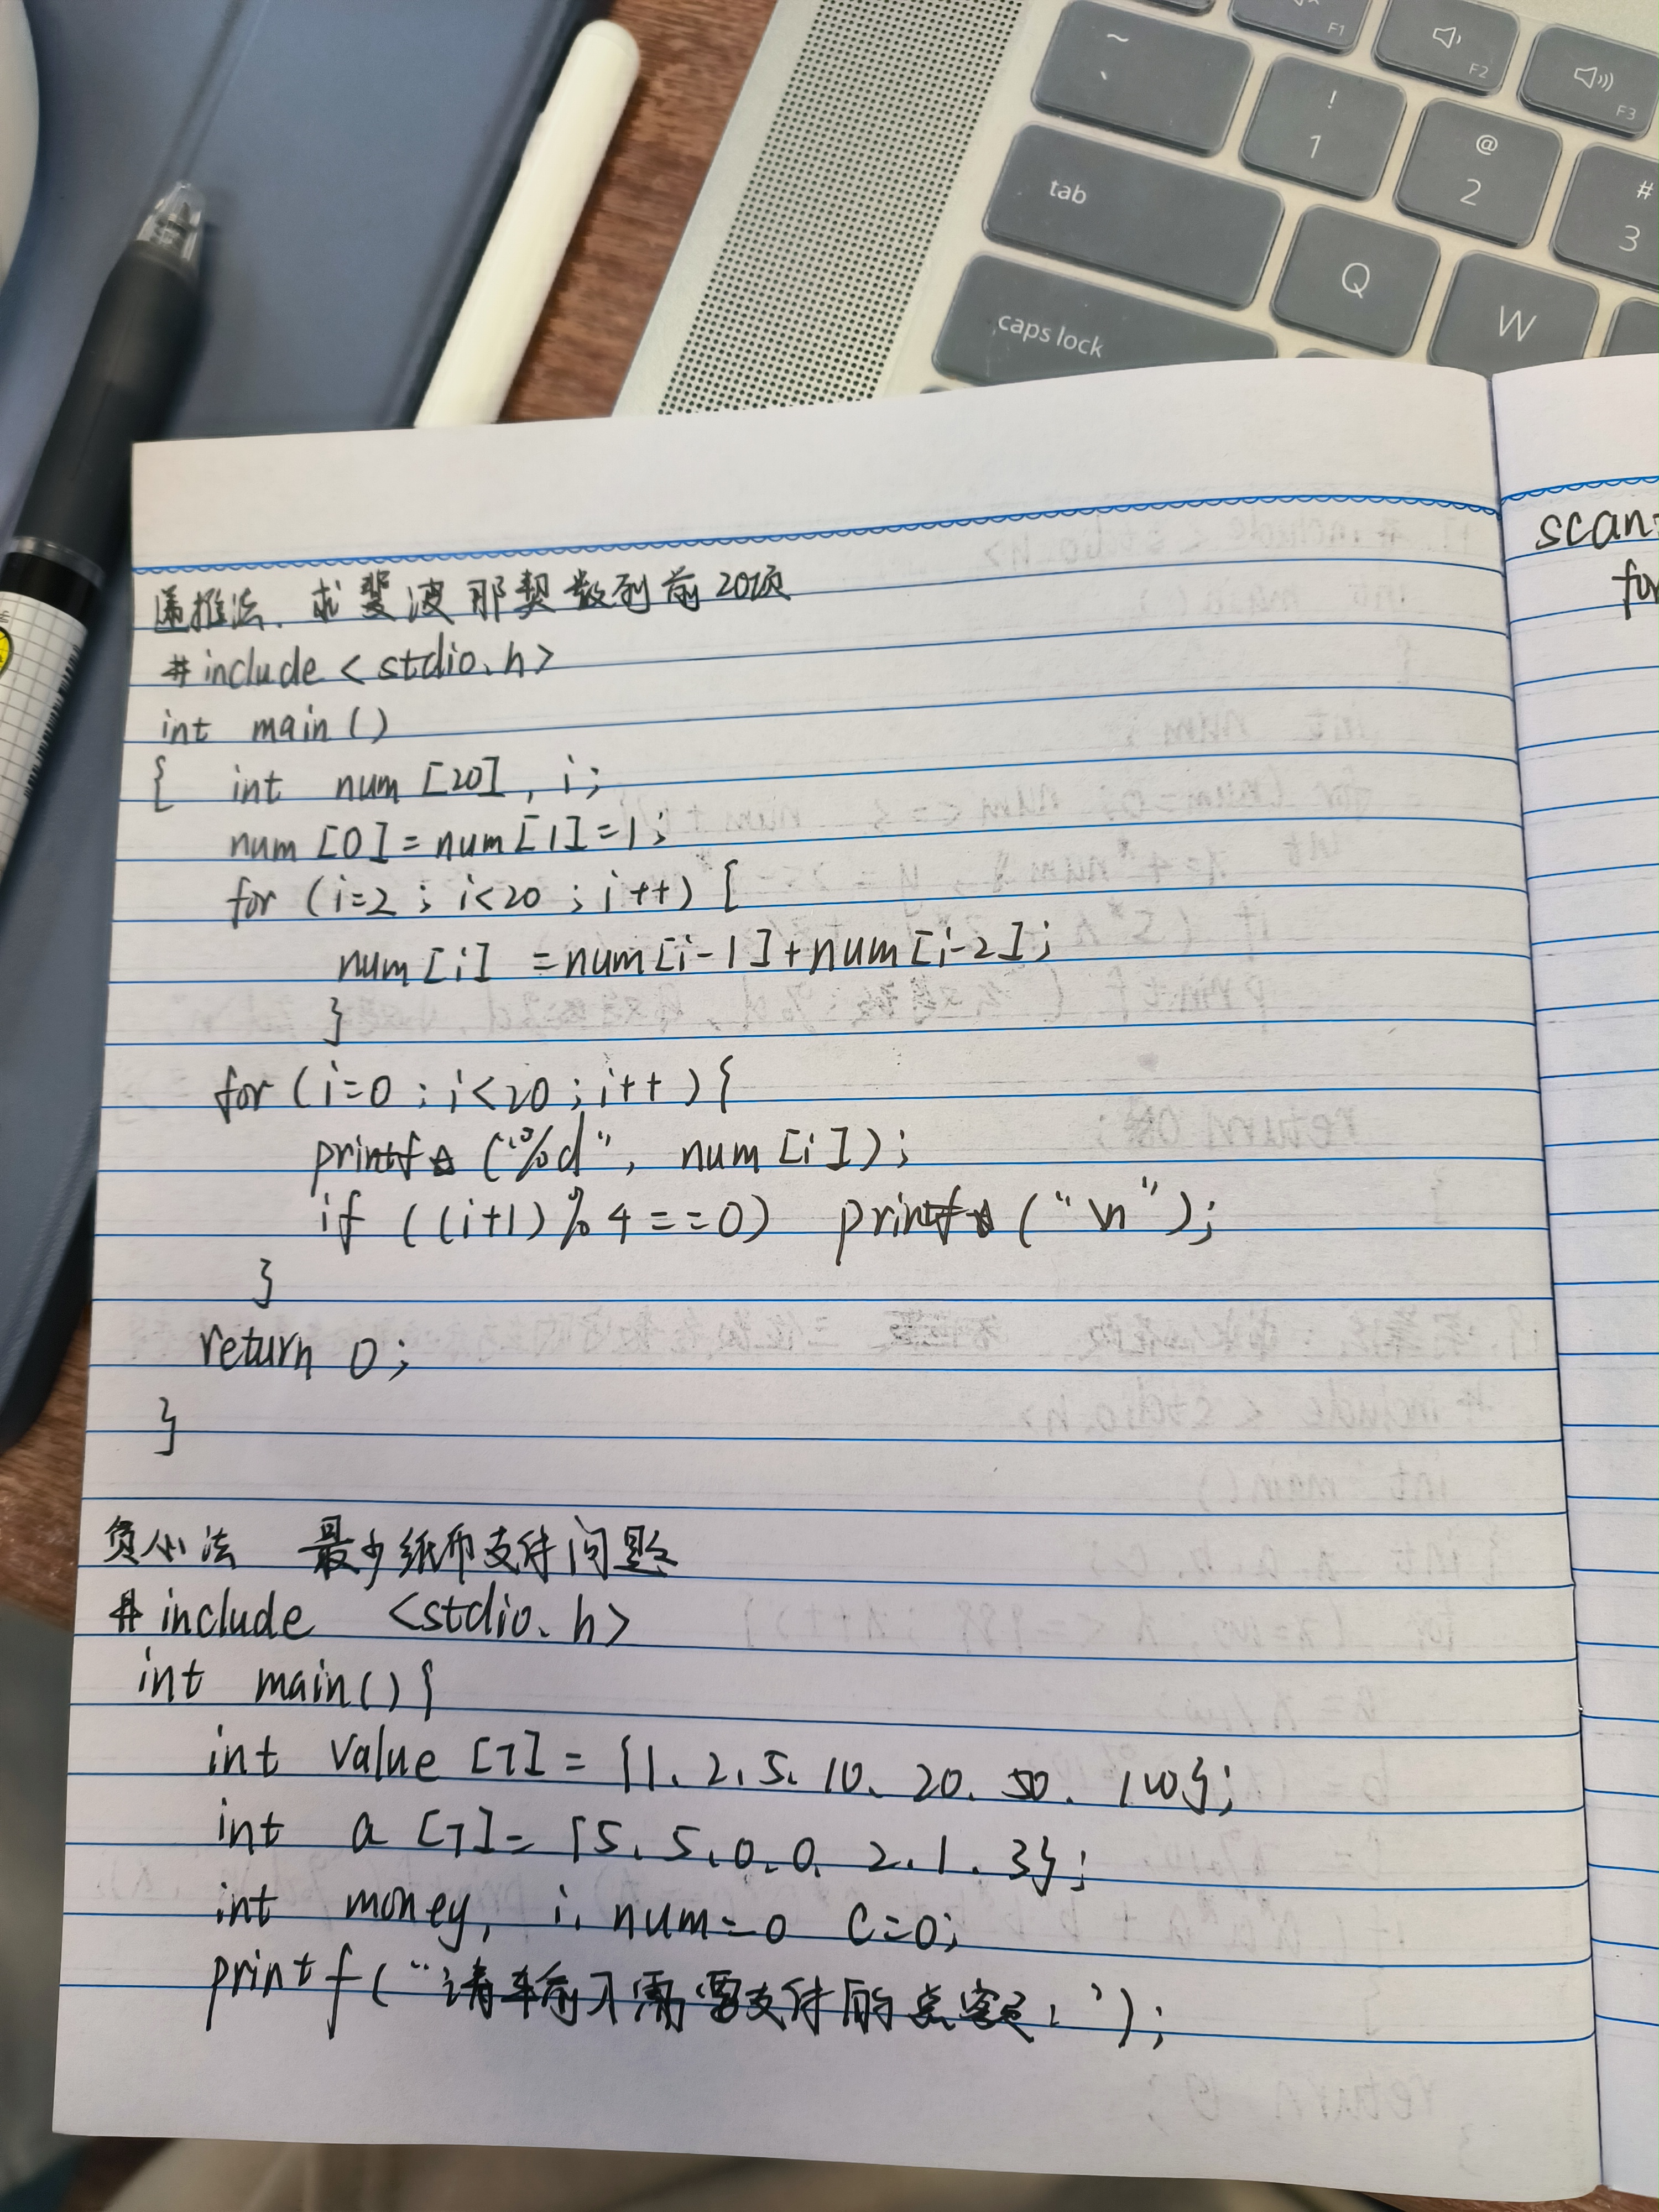 ~
`
!
1
@
2
#
3
F1
F2
F3
tab
Q
W
caps lock
递推法.求斐波那契数列前20项
#include<stdio.h>
int main()
{ int num[20],i;
num[0]=num[1]=1;
for(i=2;i<20;i++){
num[i]=num[i-1]+num[i-2];
}
for(i=0;i<20;i++){
printf("%d", num[i]);
if((i+1)%4==0) printf("\n");
}
return 0;
}
贪心法 最少纸币支付问题
#include <stdio.h>
int main(){
int value[7]={1、2、5、10、20、50、100};
int a[7]={5、5、0、0、2、1、3};
int money, i, num=0 c=0;
printf("请输入需要支付的总额:");
scan
for